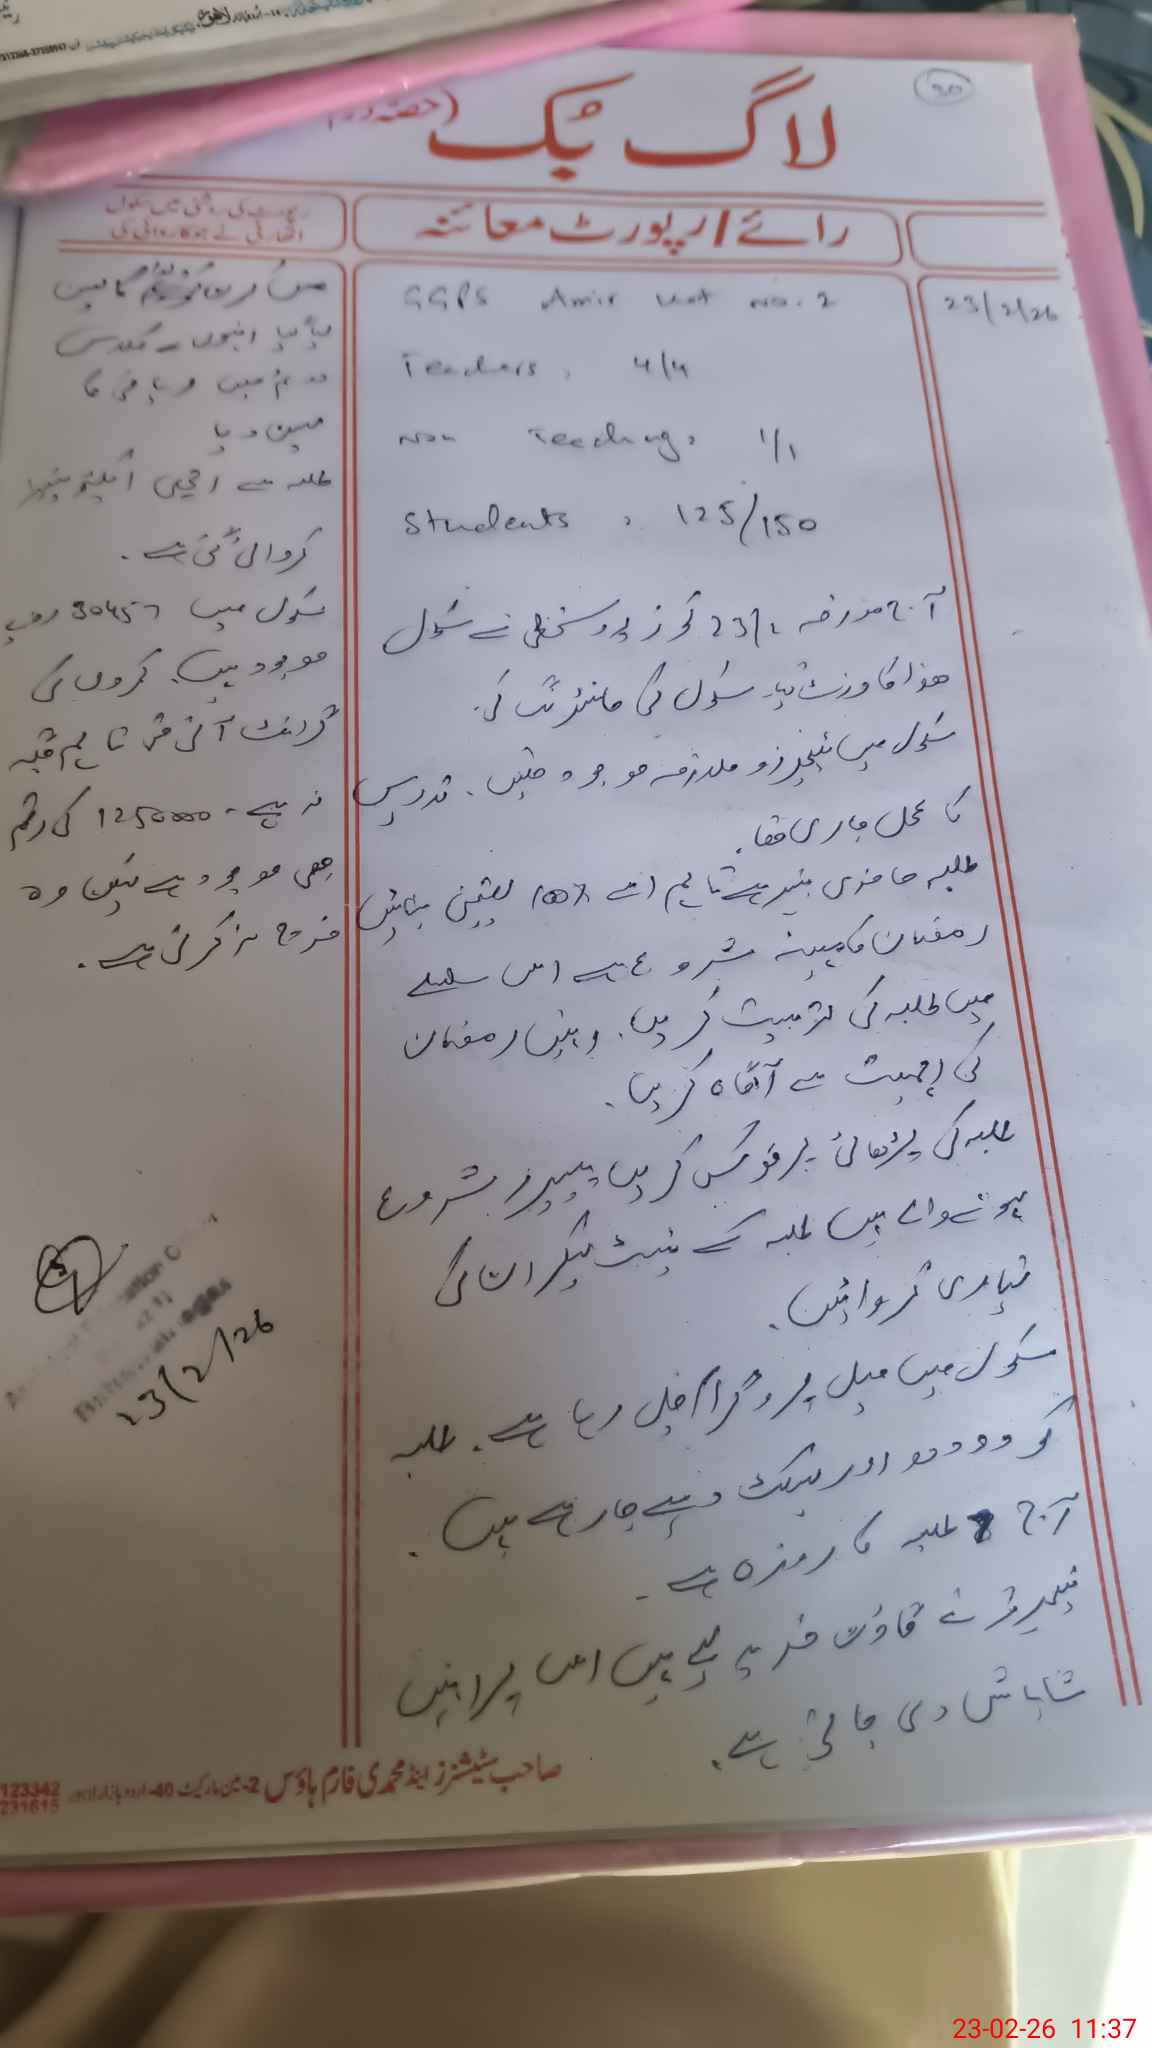 20
لاگ بک (حصہ دوم)
رائے / رپورٹ معائنہ
رپورٹ کی روشنی میں سکول
اتھارٹی نے جو کاروائی کی
23/2/26
GGPS Amir Kot No. 2
Teachers, 4/4
Non Teaching, 1/1
Students, 125/150
آج مورخہ 23/2 کو زیر دستخطی نے سکول
ھذا کا وزٹ کیا۔ سکول کی مانیٹرنگ کی۔
سکول میں ٹیچرز و ملازمہ موجود تھیں۔ تدریس
کا عمل جاری تھا۔
طلبہ حاضری بہتر ہے تاہم اسے 100% یقینی بنائیں
رمضان کا مہینہ شروع ہے اس سلسلے
میں طلبہ کی تربیت کریں۔ انہیں رمضان
کی اہمیت سے آگاہ کریں۔
طلبہ کی پڑھائی پر فوکس کریں پیپرز شروع
ہونے والے ہیں طلبہ کے ٹیسٹ لیکر ان کی
تیاری کروائیں۔
سکول میں میل پروگرام چل رہا ہے۔ طلبہ
کو دودھ اور بسکٹ دیے جا رہے ہیں۔
آج 7 طلبہ کا روزہ ہے۔
ٹیچرز نے گاؤن خرید لیے ہیں اس پر انہیں
شاباش دی جاتی ہے۔
پایا گیا انہوں نے کلاس
میں ریاضی کا
سبق دیا
طلبہ سے اچھی
کروائی گئی ہے۔
سکول میں 30457 روپے
موجود ہیں۔ کمروں کی
گرانٹ آئی تھی تاہم قبضہ
نہ ہے۔ 1250000 کی رقم
بھی موجود ہے لیکن وہ
خرچ نہ کرنی ہے۔
23/2/26
صاحب سٹیشنرز اینڈ محمدی فارم ہاؤس 2-مین مارکیٹ 40-اردو بازار لاہور
123342
231615
23-02-26 11:37